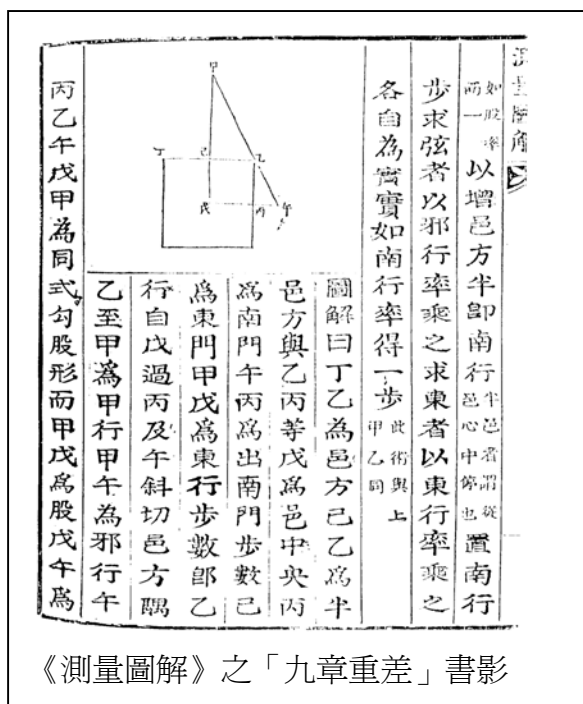 測量圖解
如股率
而一
以增邑方半卽南行
半邑者謂從
邑心中停也
置南行
步求弦者以邪行率乘之求東者以東行率乘之
各自為實實如南行率得一步
此術與上
甲乙同
甲
丁
己
乙
戊
丙
午
圖解曰丁乙為邑方己乙為半
邑方與乙丙等戊為邑中央丙
為南門午丙為出南門步數己
為東門甲戊為東行步數卽乙
行自戊過丙及午斜切邑方隅
乙至甲為甲行甲午為邪行午
丙乙午戊甲為同式勾股形而甲戊為股戊午為
《測量圖解》之「九章重差」書影